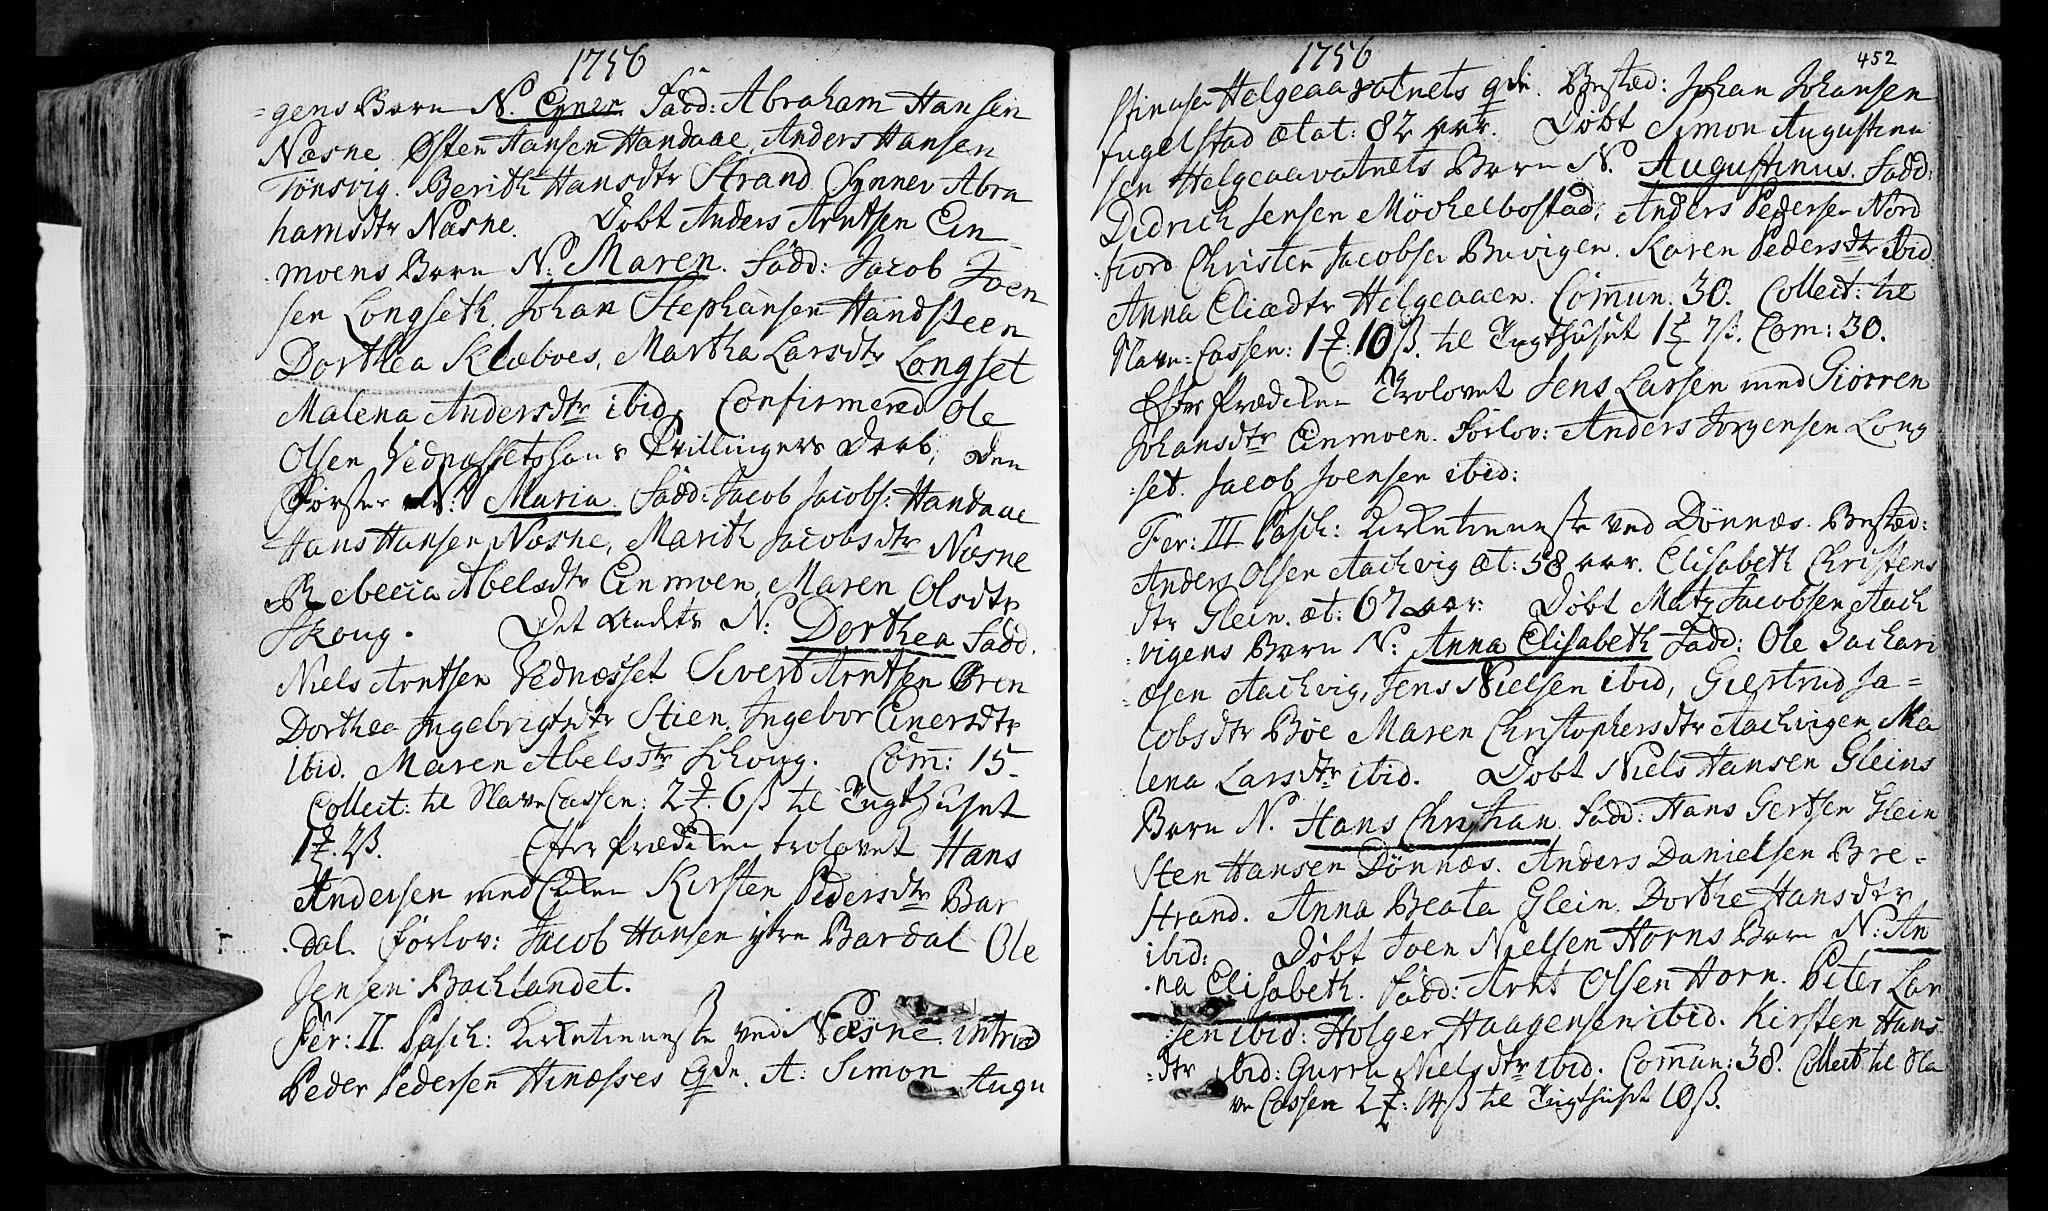 1756
=gens Barn N. Cyner. Fadd: Abraham Hansen
Næsne Østen Hansen Handaae, Anders Hansen
Tønsvig. Berith Hansdtr Strand Synnev Abra
hamsdtr Næsne. Døbt Anders Arntsen Ein-
moens Barn N: Maren. Fadd: Jacob Joen
sen Longseth. Johan Stephansen Handsteen
Dorthea Klæboes, Martha Larsdtr Longset
Malena Andersdtr ibid. Confirmered Ole
Olsen Vednæssets hans Tvillingers Daab, den
Første N: Maria Fadd: Jacob Jacobs: Handaae
Hans Hansen Næsne, Marith Jacobsdtr Næsne
Rebecca Abelsdtr Einmoen, Maren Olsdtr
Skoug. Det andet N: Dorthea Fadd.
Niels Arntsen Vednæsset Sivert Arntsen Bren
Dorthea Ingebrigtsdtr Stien, Ingebor Einersdtr
ibid. Maren Abelsdtr Schoug. Com: 15-
Collect: til SlaveCassen: 2 ₰. 6 ß til Tugthuset
1 ₰. 7ß. Efter Prædiken trolovet Hans
Andersen med Kirsten Pedersdtr Bar
dal. Forlov: Jacob Hansen ytre Bardal Ole
Jensen Bachlandet.
Fer: II Pasch: Kirketienneste ved Næsne. introd
Peder Pedersen Hinæsses qde. A: Simon Augu

1756 452
stinusen Helgeaavatnets qde. Bested: Johan Johansen
fugelstad ætat: 82 aar. Døbt Simon Augustinu
sen Helgeaavatnets Barn N. Augustinus. Fadd:
Didrich Jensen Møchelbostad. Anders Pedersen Nord
fiord Christen Jacobsen Buvigen. Karen Pedersdtr ibid.
Anna Eliædtr Helgeaaen. Comun. 30. Collect: til
Slave-Cassen: 1 ₰. 10 ß. til Tugthuset 1 ₰ 7ß. Com: 30.
Efter Prædiken Trolovet Jens Larsen med Giørren
Johansdtr Einmoen. Forlov: Anders Jørgensen Long
:set. Jacob Joensen ibid:
Fer: III Pasch: Kirketienneste ved Dønnæs. Bested:
Anders Olsen Aachvig æt: 58 aar. Elisabeth Christens
dtr Glein. æt: 67 aar: Døbt Matz Jacobsen Aach
:vigens Barn N: Anna Elisabeth Fadd: Ole Zachari
=æsen Aachvig, Jens Nielsen ibid, Giertrud Ja=
cobsdtr Bøe Maren Christophersdtr Aachvigen Ma
lena Larsdtr ibid. Døbt Niels Hansen Gleins
Barn N. Hans Christian Fadd: Hans Gertsen Glein
Sten Hansen Dønnæs. Anders Danielsen Bre-
strand. Anna Beata Glein. Dorthe Hansdtr
ibid: Døbt Joen Nielsen Horns Barn N: An
.na Elisabeth. Fadd: Arnt Olsen Horn. Peter Lar
:sen ibid: Holger Haagensen ibid. Kirsten Hans
:dtr ibid: Gurru Nielsdtr ibid. Comun: 38. Collect til Sla
ve Cassen 2 ₰: 14 ß til Tugthuset 10 ß.